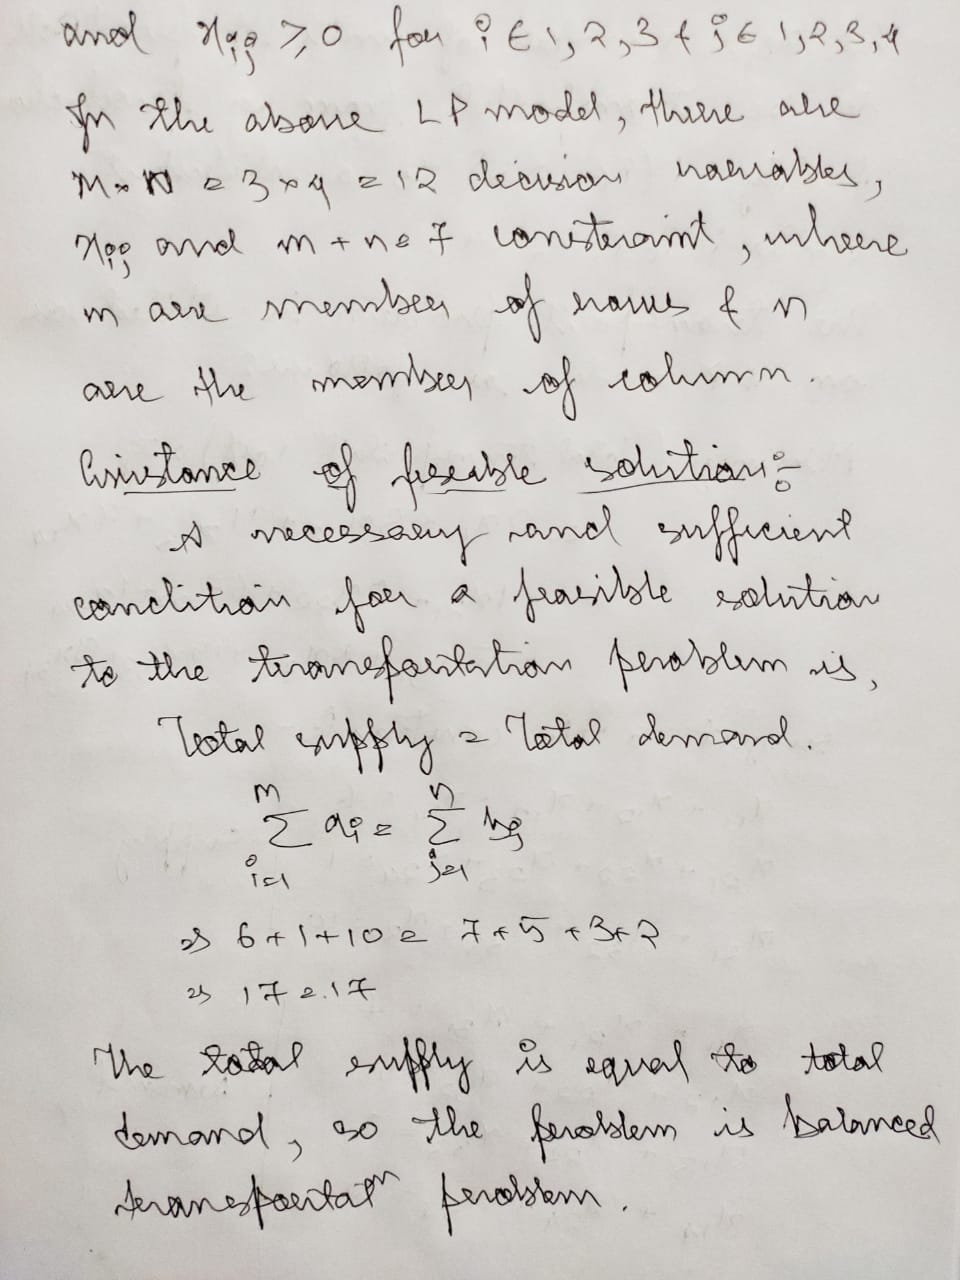 and xij ≥ 0 for i ∈ 1,2,3 & j ∈ 1,2,3,4
In the above LP model, there are
m × N = 3 × 4 = 12 decision variables,
xij and m + n = 7 constraint, where
m are member of rows & n
are the member of column.
Existance of feseable solution :-
A necessary and sufficient
condition for a feasible solution
to the transportation problem is,
Total supply = Total demand.
m n
Σ ai = Σ bj
i=1 j=1
⇒ 6+1+10 = 7+5+3+2
⇒ 17 = 17
The total supply is equal to total
demand, so the problem is balanced
transportatⁿ problem.